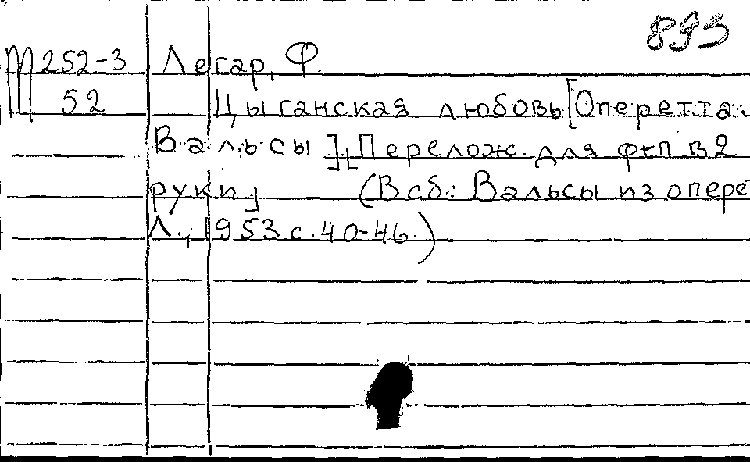 893
М 252-3 Легар, Ф.
52 Цыганская любовь [Оперетта.
Вальсы]. [Перелож. для ф-п в 2
руки] (В сб.: Вальсы из опере
Л., 1953 с. 40-46.)